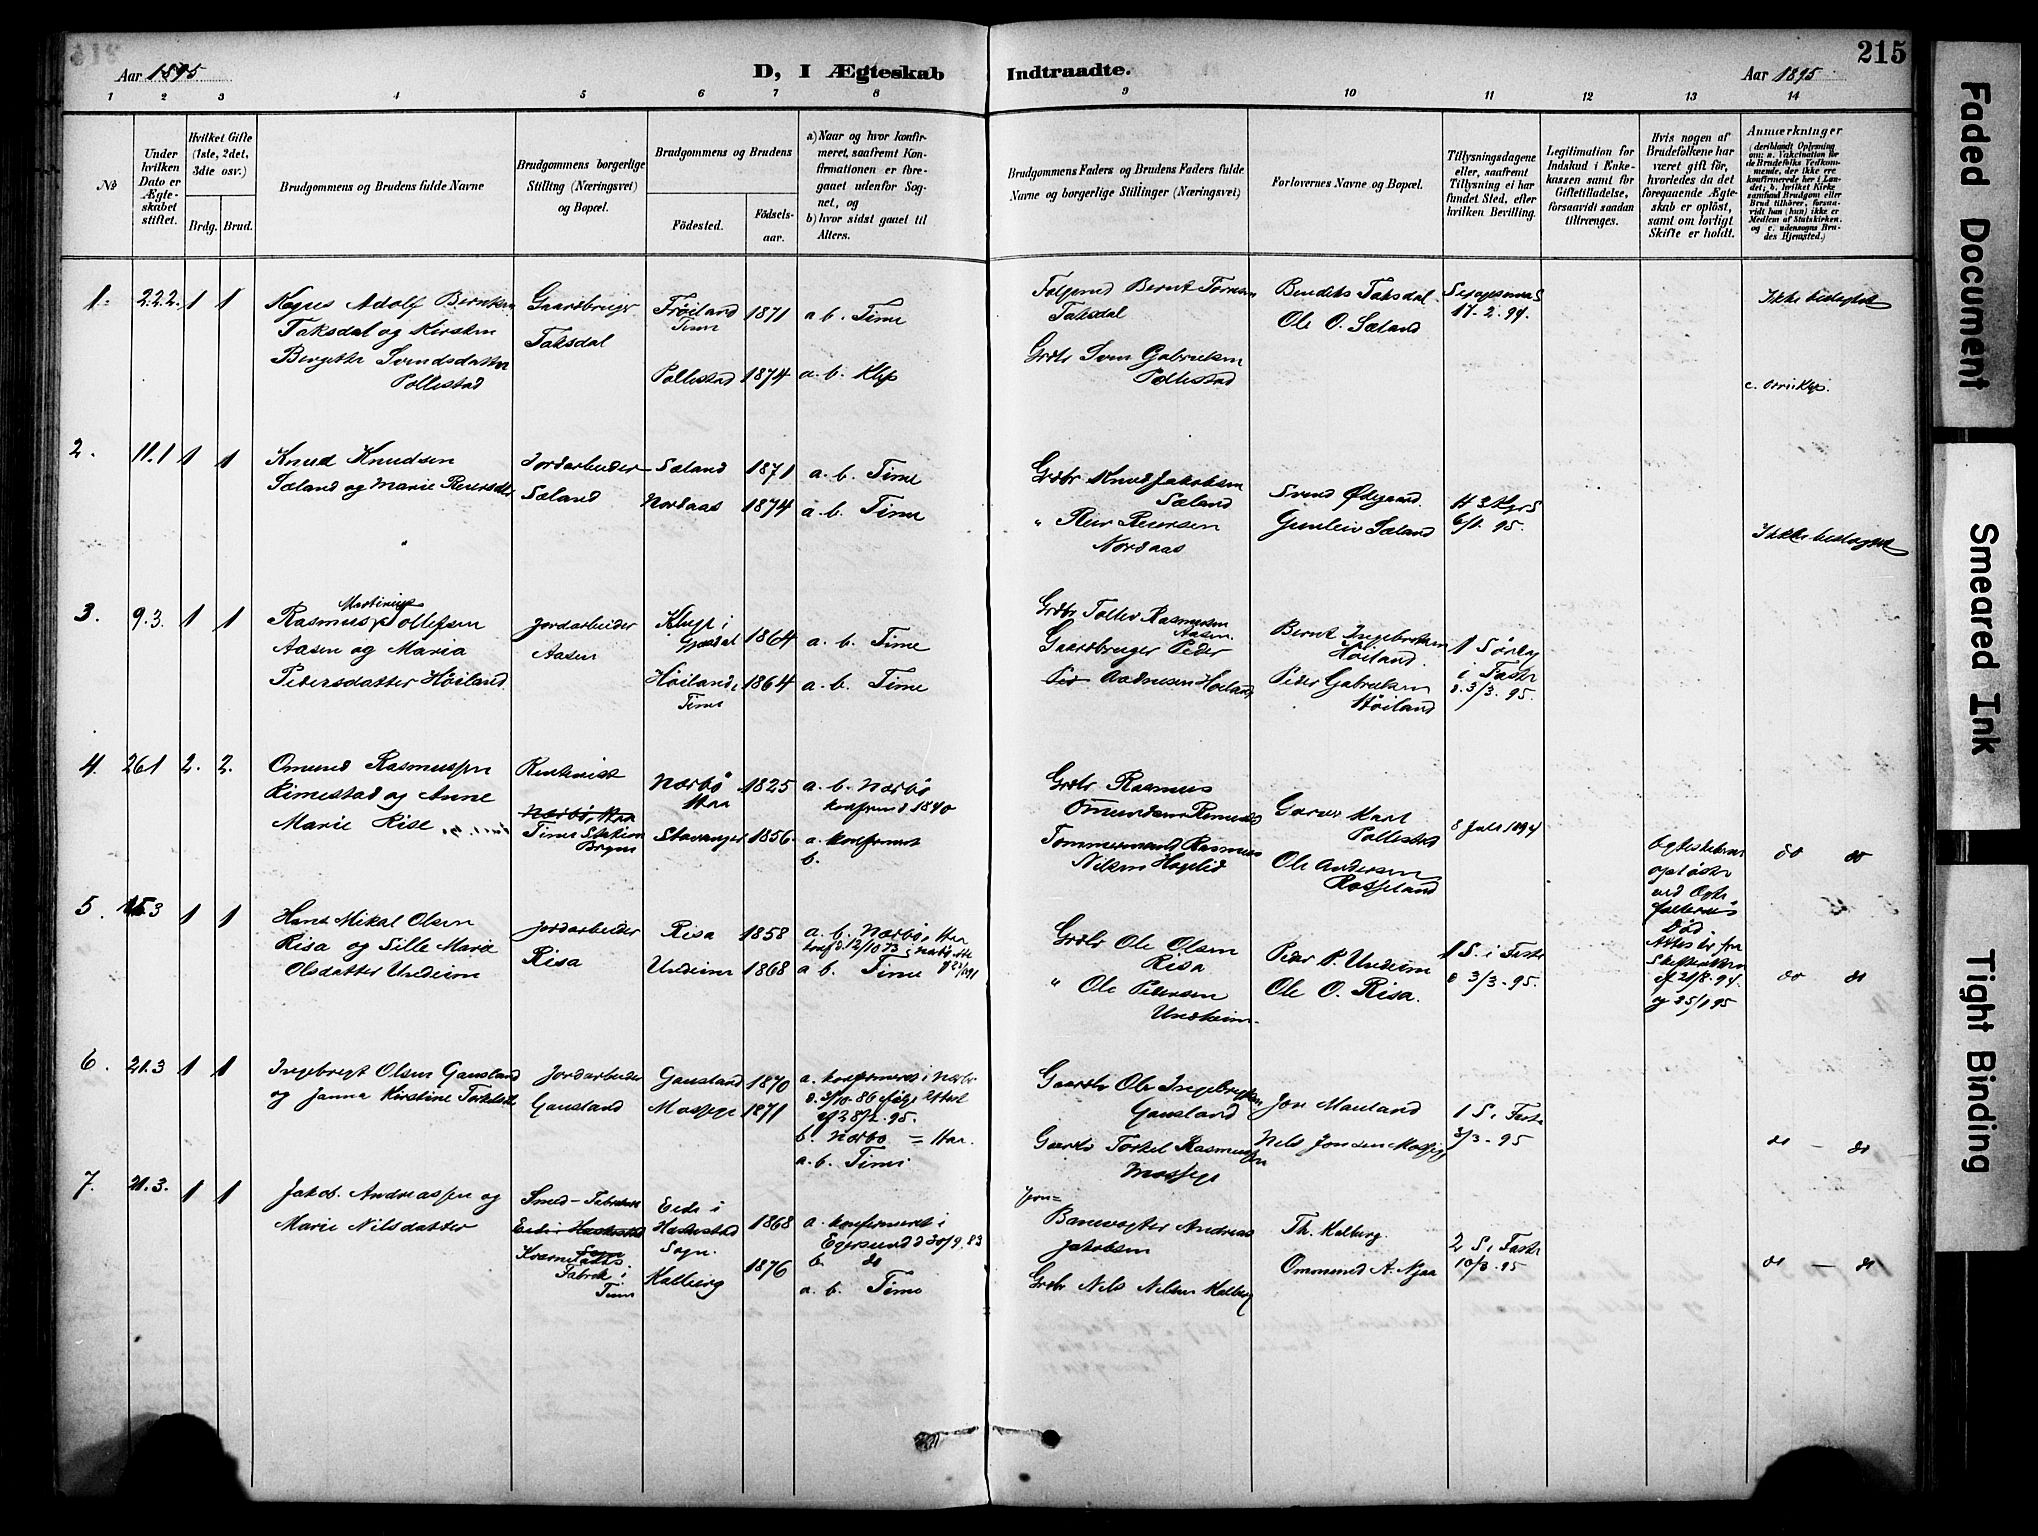 215
Aar 1895
D, I Ægteskab Indtraadte.
Aar 1895
1 2 3 4 5 6 7 8 9 10 11 12 13 14
No
Under hvilken Dato er Ægteskabet stiftet.
Hvilket Gifte (1ste, 2det, 3die osv.)
Brdg. Brud.
Brudgommens og Brudens fulde Navne
Brudgommens borgerlige Stilling (Næringsvei) og Bopæl.
Brudgommens og Brudens
Fødested.
Fødselsaar.
a) Naar og hvor konfirmeret, saafremt Konfirmationen er foregaaet udenfor Sognet, og
b) hvor sidst gaaet til Alters.
Brudgommens Faders og Brudens Faders fulde Navne og borgerlige Stillinger (Næringsvei)
Forlovernes Navne og Bopæl.
Tillysningsdagene eller, saafremt Tillysning ei har fundet Sted, efter hvilken Bevilling.
Legitimation for Indskud i Enkekassen samt for Giftetilladelse, forsaavidt saadan tiltrænges.
Hvis nogen af Brudefolkene har været gift før, hvorledes da det foregaaende Ægteskab er opløst, samt om lovligt Skifte er holdt.
Anmærkninger
(deriblandt Oplysning om: a. Vakcination for de Brudefolks Vedkommende, der ikke ere konfirmerede her i Landet; b. hvilket Kirkesamfund Brudgom eller Brud tilhører, forsaavidt han (hun) ikke er Medlem af Statskirken. og c. udensogns Brudes Hjemsted.)
1. 22.2. 1 1
Adolf Berntsen
Taksdal og Kirsten
Bergitte Svendsdatter
Pollestad
Gaardbruger
Taksdal
Frøiland
Time
1871
a. b. Time
Pollestad 1874 a. b. Klep
Bernt Tørresen
Taksdal
Grdbr Sven Gabrielsen
Pollestad
Bendiks Taksdal
Ole O. Sæland
17-2.94.
Ikke beslægtet
2. 11.1 1 1
Knud Knudsen
Sæland og Marie Reiersdtr
Jordarbeider
Sæland
Sæland 1871 a. b. Time
Nordaas 1874 a. b. Time
Grdbr Knud Jakobsen
Sæland
" Reier Reiersen
Nordaas
Svend Ødegaard
Gunleiv Sæland
H 3 Kgrs
6/1. 95.
Ikke beslægtet
3. 9.3. 1 1
Martinius
Rasmus Tollefsen
Aasen og Maria
Pedersdatter Høiland
Jordarbeider
Aasen
i
Gjesdal
1864
a. b. Time
Høiland i
Time
1864
a. b. Time
Grdbr Tollev Rasmusen
Aasen.
Gaardbruger Peder
Aadnesen Høiland
Bernt Ingebretsen
Høiland.
Peder Gabrielsen
Høiland
1 Søndag
i Faste
d. 3/3. 95.
4. 26.1 2. 2.
Omund Rasmussen
Rimestad og Anne
Marie Rise
Nærbø, Haa
Time Station
Bryne
Nærbø
Haa
1825
a. b. Nærbø
konfirmeret 1840
Stavanger 1856.
a. konfirmeret
b.
Grdbr Rasmus
Omundsen
Tømmermand Rasmus
Nilsen
Pollestad
Ole Andersen
Rosseland
8 Juli 1894
Ægteskaberne
opløste
ved Ægtefællernes
Død.
Attester fra
Skifteretten
af 21/8. 94.
og 25/1 95
do do
5. 15.3 1 1
Hans Mikal Olsen
Risa og Sille Marie
Olsdatter Undeim
Jordarbeider
Risa
Risa 1858 a. b. Nærbø, Haa
Undeim 1868 a. b. Time
Grdbr Ole Olsen
Risa
" Ole Pedersen
Undheim.
Peder P. Undeim
Ole O. Risa.
1 S. i Faste
d 3/3-95.
do do
6. 21.3 1 1
Ingebregt Olsen Gausland
og Janna Kirstine Torkelsdtr
Jordarbeider
Gausland
Gausland 1870
Mossige 1871
a. konfirmeret i Nærbø
d. 3/10. 86 ifølge Attest
af 28/2. 95.
b. Nærbø = Haa.
a. b. Time
Gaardbr Ole Ingebregtsen
Gausland
Gaardbr Torkel Rasmussen
Mossige
Jon Mauland
Nils Jonsen Mossige
1 S. i Faste
3/3-95
do — do
7. 21.3. 1 1
Jakob Andreassen og
Marie Nilsdatter
Smed -
Eide i Hæskestad
Sogn
Kverneland's
Fabrik i
Time
Eide i
Hæskestad
Sogn.
1868
a. konfirmeret i
Egersund d 30/9. 83
b. do
Kalberg 1876
a. b. Time
Jern=
Banevogter Andreas
Jakobsen
Grdbr Nils Nilsen Kalberg
Th. Kalberg.
Ommund A. Njaa
2 S. i Faste
10/3. 95
do — do
Faded Document
Smeared Ink
Tight Binding